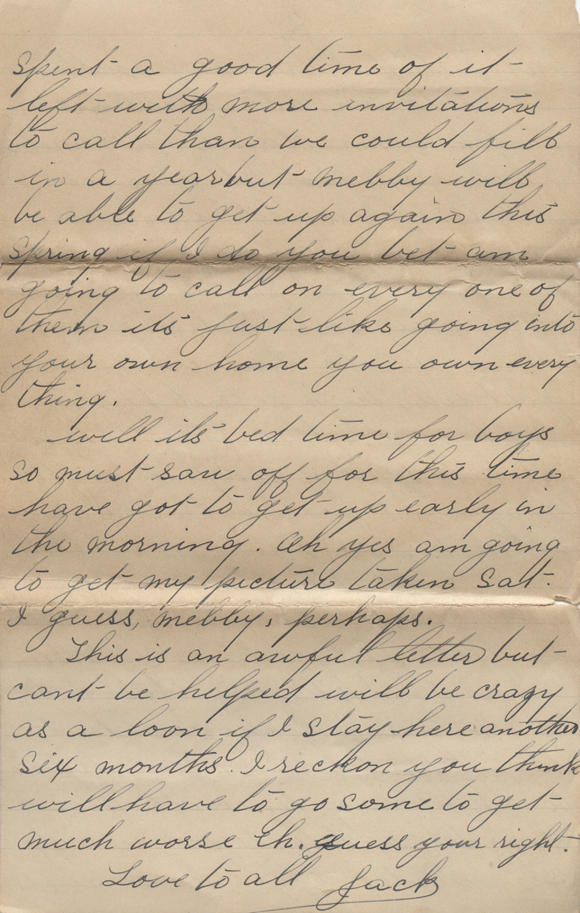 spent a good time of it
left with more invitations
to call than we could fill
in a year but mebby will
be able to get up again this
spring if I do you bet am
going to call on every one of
them its just like going into
your own home you own every
thing.
well its bed time for boys
so must saw off for this time
have got to get up early in
the morning. Oh yes am going
to get my picture taken Sat.
I guess, mebby, perhaps.
This is an awful letter but
cant be helped will be crazy
as a loon if I stay here another
six months. I reckon you think
will have to go some to get
much worse eh. guess your right.
Love to all Jack